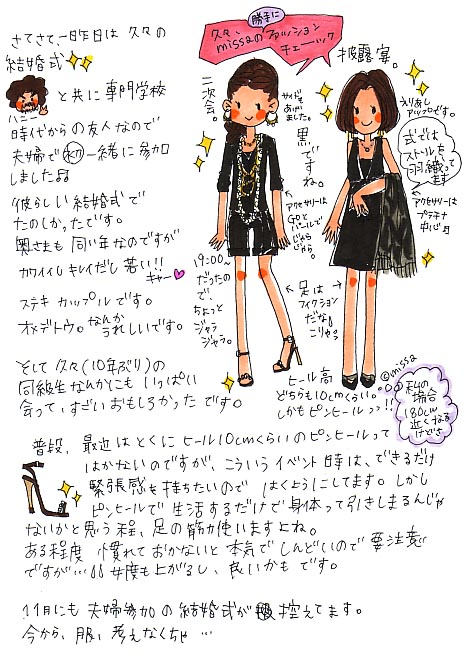 さてさて、一昨日は 久々の
結婚式
ハニー
と共に 専門学校
時代からの友人なので
夫婦で 一緒に参加
しました
彼らしい 結婚式で
たのしかったです。
奥さまも 同い年なのですが
カワイイし キレイだし 若い!!
キャー
ステキ カップル です。
オメデトウ。なんか
うれしいです。
そして 久々(10年ぶり)の
同級生なんかにも いっぱい
会って、すごい おもしろかった です。
勝手に
久々、
missaの ファッション
チェーック
披露宴。
二次会。
サイドを
あげ
ました。
黒
ですね。
えりあし
アップです。
式では
ストールを
羽織って
ます
アクセサリーは
プラチナ
中心
アクセサリーは
GOLDとパールで
じゃら
じゃら。
19:00~
だったの
で、
ちょっと
ジャラ
ジャラ。
足は
フィクション
だな
こりゃっ
©missa
ヒール高
どちらも10cmくらい。
しかもピンヒールっっ!!
私の
場合
180cm
近くなる
けどさ
普段、最近は とくに ヒール10cmくらいのピンヒールって
はかないのですが、こういうイベント時は、できるだけ
緊張感を持ちたいので はくようにしてます。しかし
ピンヒールで 生活するだけで 身体って引きしまるんじゃ
ないかと思う程、足の筋力使いますよね。
ある程度 慣れておかないと 本気で しんどいので 要注意
ですが… 女度も上がるし、良いかも です。
11月にも 夫婦参加の結婚式が 控えてます。
今から、服、考えなくちゃ …